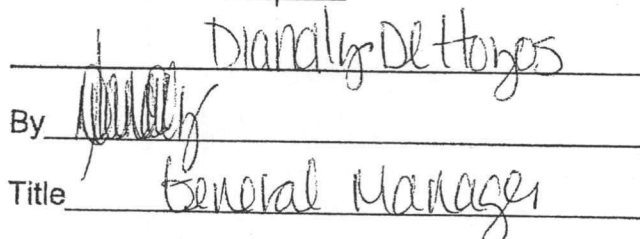 Dianaly De Hoyos
By
Title General Manager